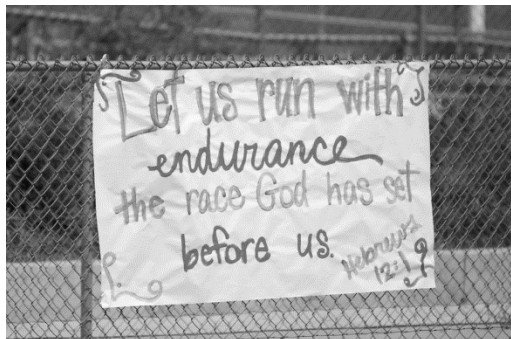 Let us run with
endurance
the race God has set
before us.
Hebrews
12:1